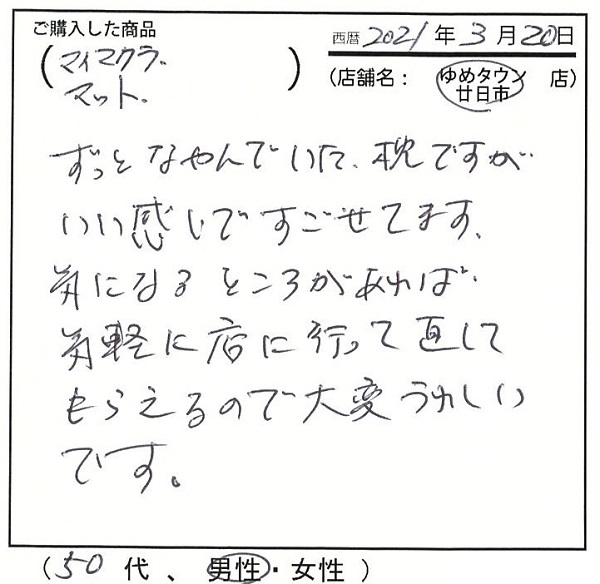 ご購入した商品
(マイマクラ、
マット、)
西暦 2021年3月20日
(店舗名： ゆめタウン 廿日市 店)
ずっとなやんでいた、枕ですが
いい感じですごせてます、
気になるところがあれば
気軽に店に行って直して
もらえるので大変うれしい
です。
(50代、男性・女性)